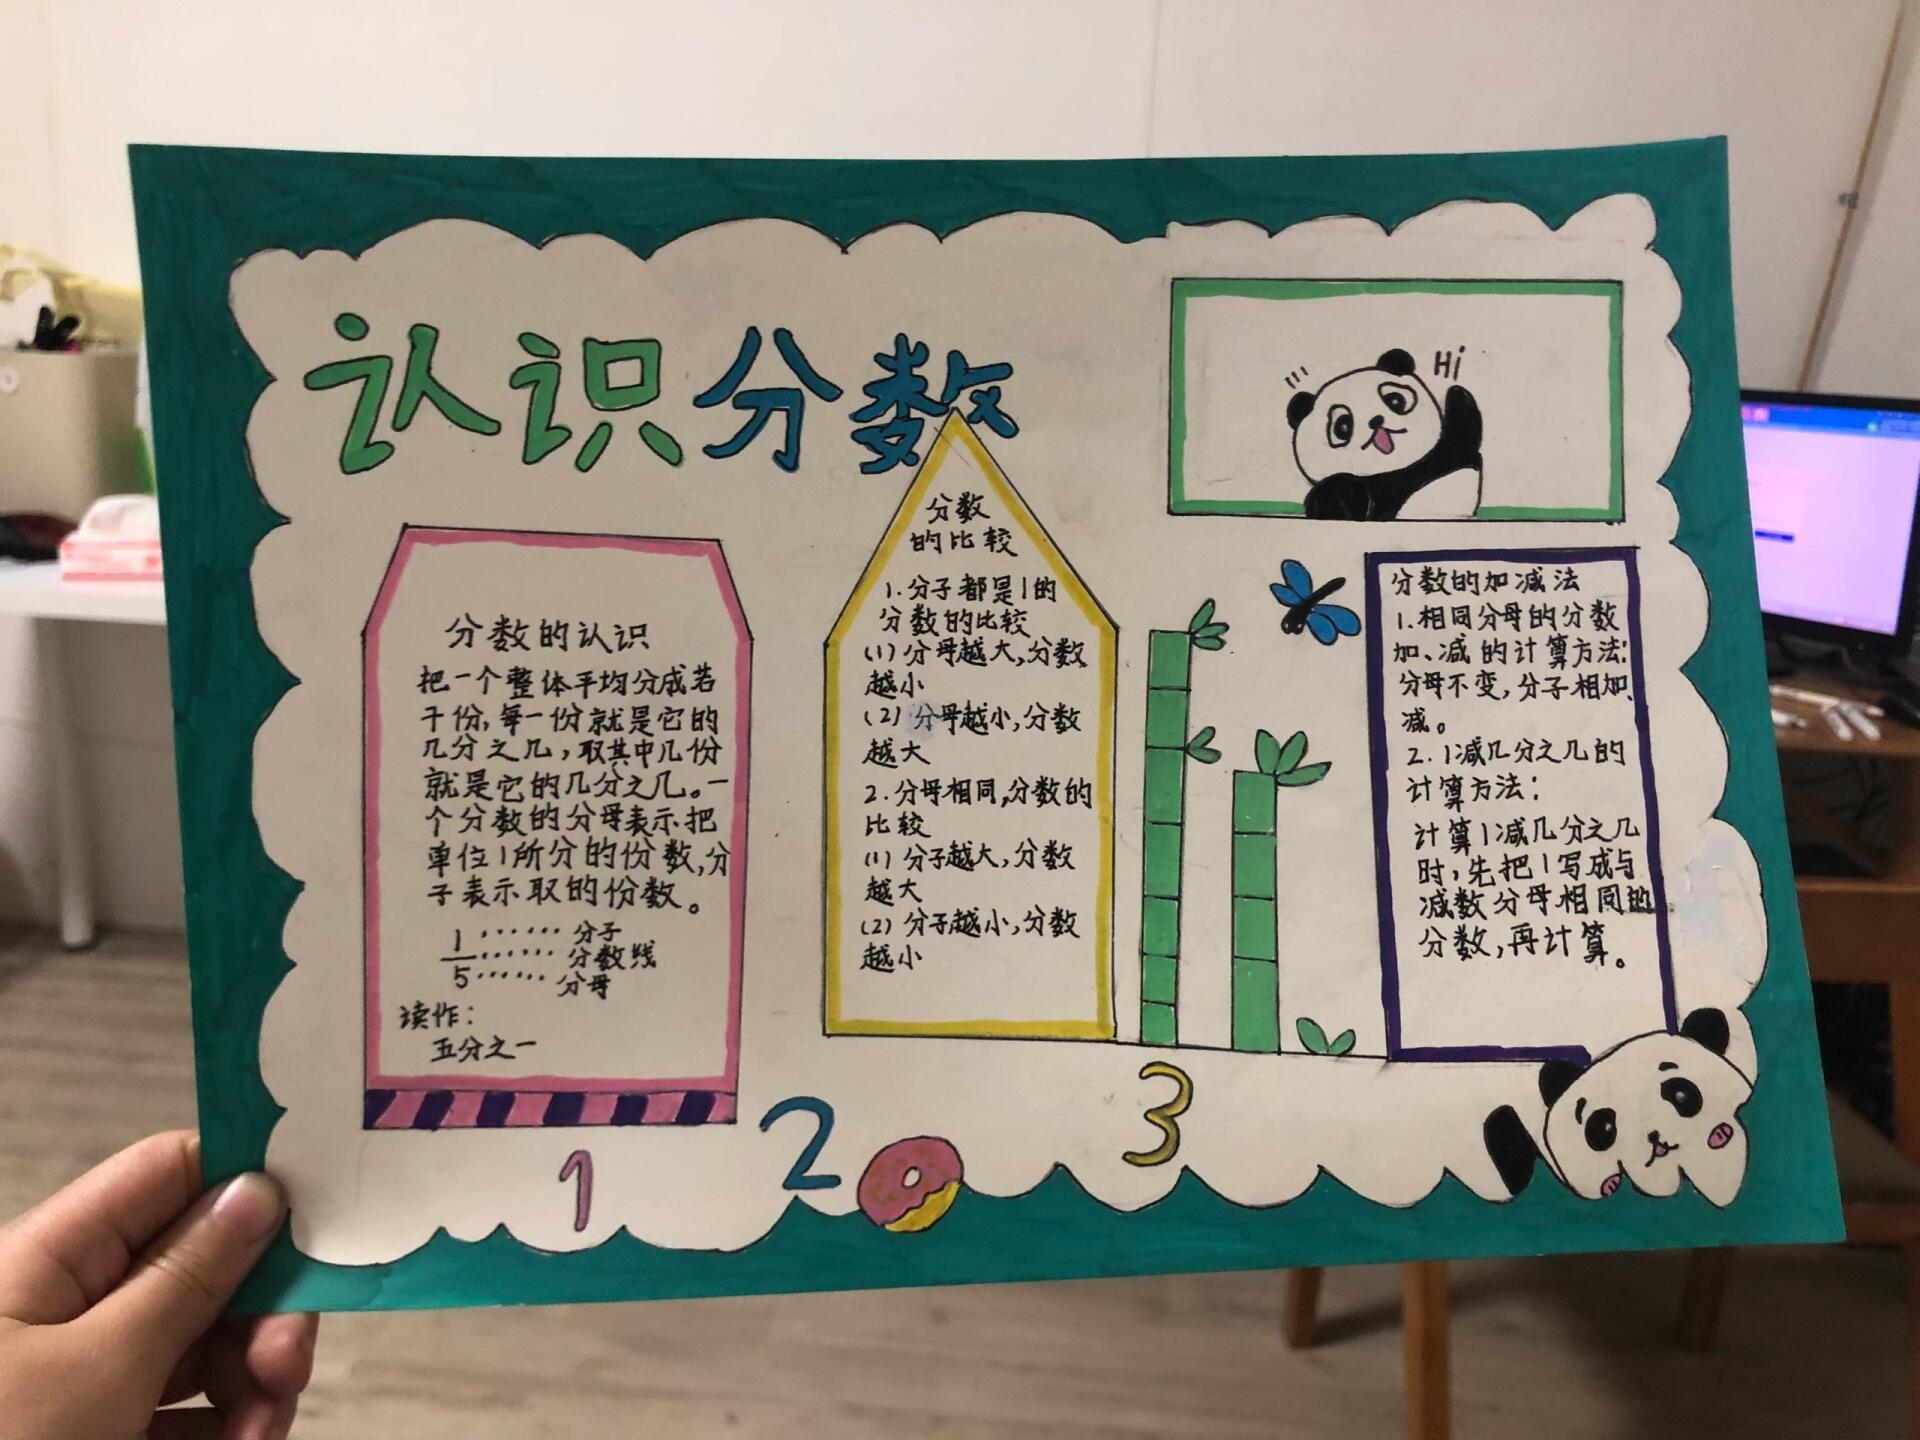 认识分数
Hi
分数的认识
把一个整体平均分成若
干份,每一份就是它的
几分之几,取其中几份
就是它的几分之几。一
个分数的分母表示把
单位1所分的份数,分
子表示取的份数。
1……分子
—……分数线
5……分母
读作:
五分之一
分数
的比较
1.分子都是1的
分数的比较
(1)分母越大,分数
越小
(2)分母越小,分数
越大
2.分母相同,分数的
比较
(1)分子越大,分数
越大
(2)分子越小,分数
越小
分数的加减法
1.相同分母的分数
加、减的计算方法:
分母不变,分子相加、
减。
2.1减几分之几的
计算方法:
计算1减几分之几
时,先把1写成与
减数分母相同的
分数,再计算。
1
2
3